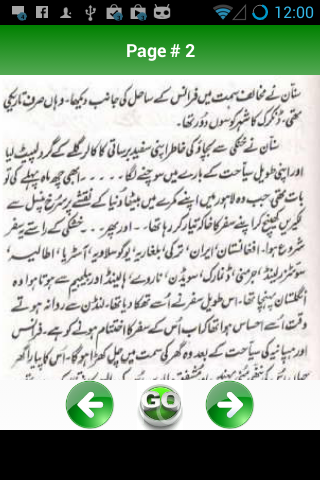 12:00
Page # 2
سنان نے مخالف سمت میں فرانس کے ساحل کی جانب دیکھا۔ وہاں صرف تاریکی
تھی، ڈنکرک کا شہر کوسوں دُور تھا۔
سنان نے خنکی سے بچاؤ کی خاطر اپنی سفید برساتی کا کالر گلے کے گرد لپیٹ لیا
اور اپنی طویل سیاحت کے بارے میں سوچنے لگا ..... ابھی چھ ماہ پہلے کی تو
بات تھی جب وہ لاہور میں اپنے کمرے میں بیٹھا دُنیا کے نقشے پر سُرخ پنسل سے
لکیریں کھینچ کر اپنے سفر کا خاکہ تیار کر رہا تھا.. اور پھر... خشکی کے راستے یہ سفر
شروع ہوا۔ افغانستان، ایران، ترکی، بلغاریہ، یوگوسلاویہ، آسٹریا، اطالیہ،
سوئٹزرلینڈ، جرمنی، ڈنمارک، سویڈن، ناروے، ہالینڈ اور بیلجیم سے ہوتا ہوا وہ
انگلستان پہنچا تھا۔ اس طویل سفر نے اُسے تھکا دیا تھا۔ لندن سے روانہ ہوتے
وقت اُسے احساس ہوا تھا کہ اب اُس کے سفر کا اختتام ہونے کو ہے۔ فرانس
اور ہسپانیہ کی سیاحت کے بعد وہ گھر کی سمت میں چل کھڑا ہو گا۔ اُس کا پیارا گھر
جہاں اُس کی ننھی مُنی بہنیں اور
GO